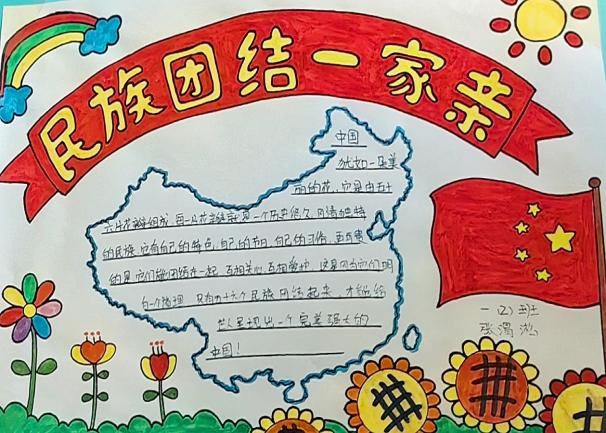 民族团结一家亲
中国
犹如一朵美
丽的花,它是由五十
六片花瓣组成,每一片花瓣就是一个历史悠久,风情独特
的民族,它有自己的特色,自己的节日,自己的习俗,更可贵
的是它们能团结在一起,互相关心,互相爱护,这是因为它们明
白一个道理,只有五十六个民族团结起来,才能给
世人呈现出一个完美强大的
中国!
一(2)班
张